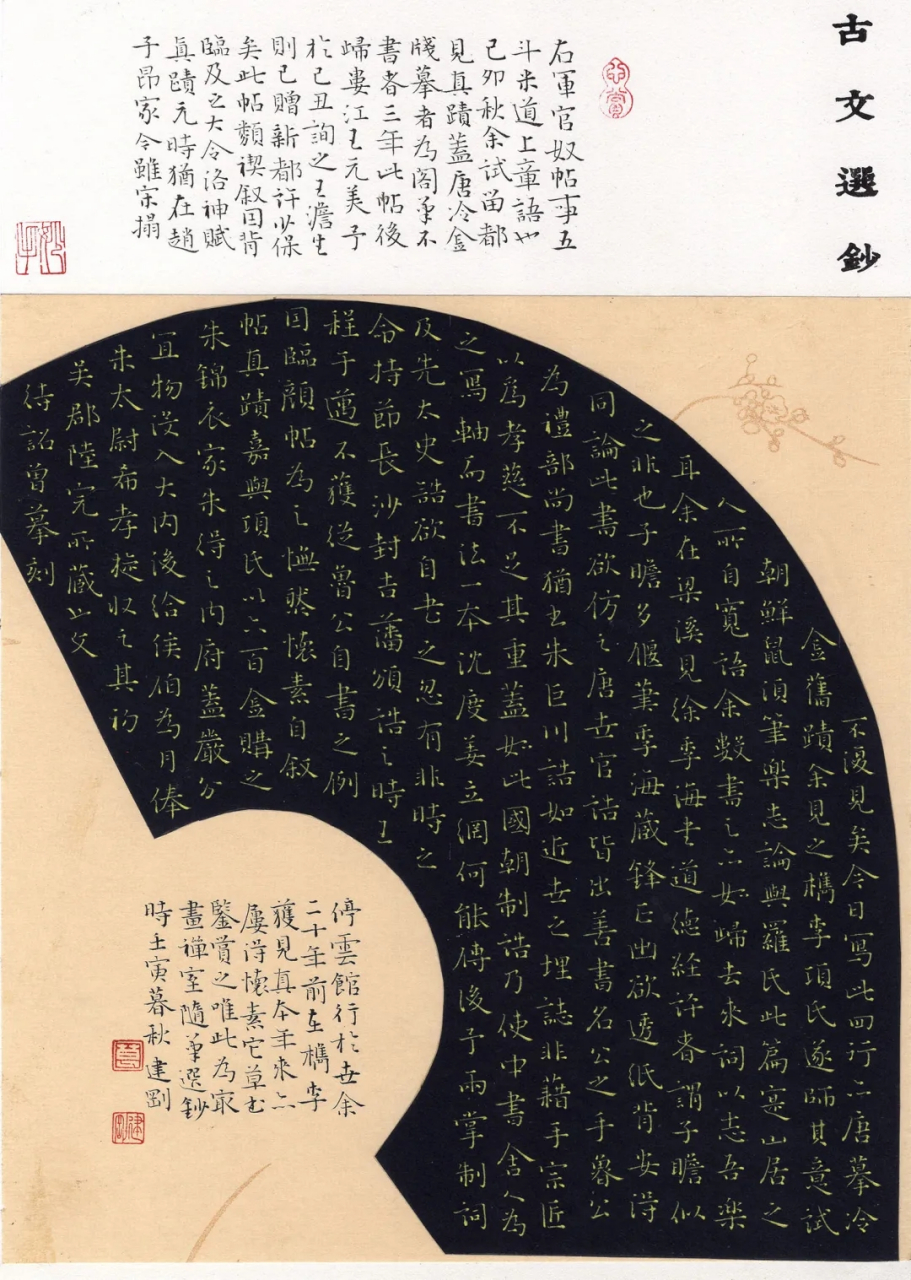 古文選鈔
右軍官奴帖事五
斗米道上章語也
己卯秋余試留都
見真蹟蓋唐冷金
牋摹者為閣筆不
書者三年此帖後
歸婁江王元美予
於己丑詢之王澹生
則已贈新都許少保
矣此帖類禊叙因背
臨及之大令洛神賦
真蹟元時猶在趙
子昂家今雖宋搨
不復見矣今日寫此四行亦唐摹冷
金舊蹟余見之檇李項氏遂師其意試
朝鮮鼠須筆樂志論與羅氏此篇寔山居之
人所自寬語余數書之亦如歸去來詞以志吾樂
耳余在梁溪見徐季海書道德經評者謂子瞻似
之非也子瞻多偃筆季海藏鋒正出欲透紙背安得
同論此書欲仿之唐世官誥皆出善書名公之手魯公
為禮部尚書猶書朱巨川誥如近世之埋誌非藉手宗匠
以為孝慈不足其重蓋如此國朝制誥乃使中書舍人為
之寫軸而書法一本沈度姜立綱何能傳後予兩掌制詞
及先大史誥欲自書之忽有非時之
命持節長沙封吉藩頒誥之時王
程予邁不獲從魯公自書之例
因臨顏帖為之憮然懷素自叙
帖真蹟嘉興項氏以六百金購之
朱錦衣家朱得之內府蓋嚴分
宜物沒入大內後給侯伯為月俸
朱太尉希孝旋收之其初
吳郡陸完所藏也文
待詔曾摹刻
停雲館行於世余
二十年前在檇李
獲見真本年來亦
屢得懷素它草書
鑒賞之唯此為最
畫禪室隨筆選鈔
時壬寅暮秋 建剛